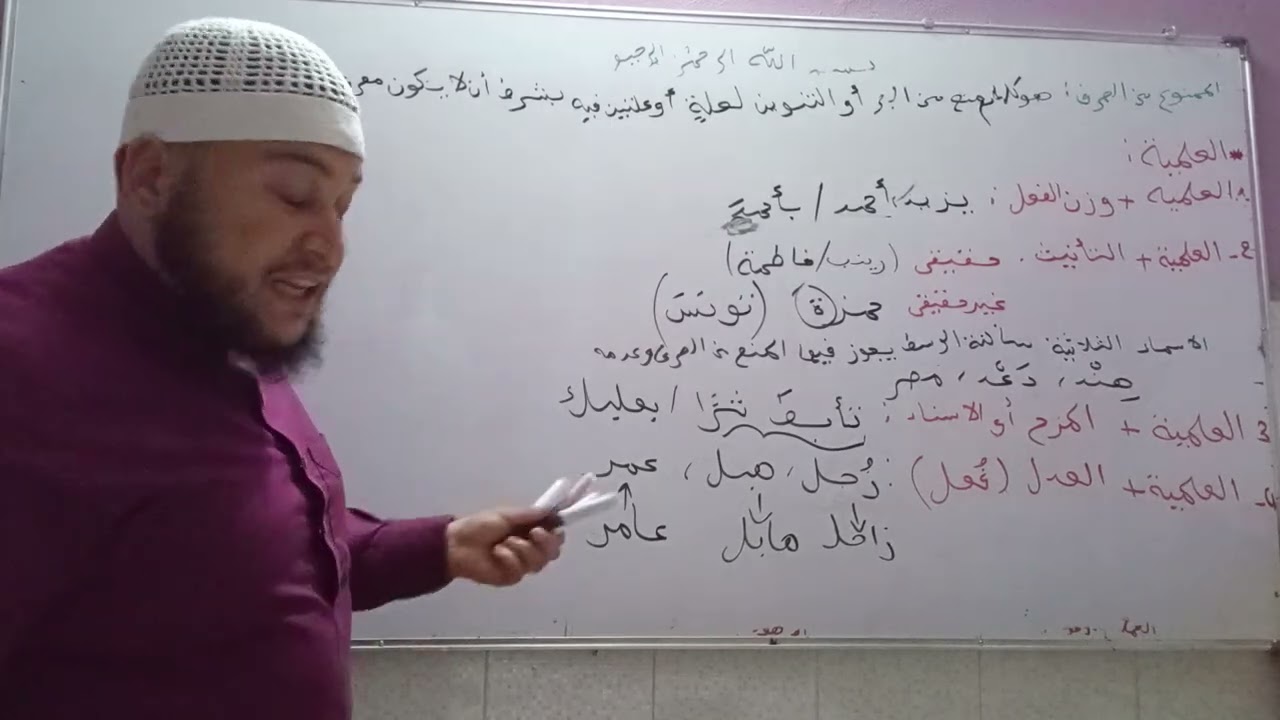 بسم الله الرحمن الرحيم
الممنوع من الصرف: هو كل ما منع من الجر أو التنوين لعلة أو علتين فيه بشرط أن لا يكون
* العلمية:
1- العلمية + وزن الفعل: يزيد، أحمد / بأحمدَ
2- العلمية + التأنيث. حقيقي (زينب/فاطمة)
غير حقيقي حمزة (تونسَ)
الاسماء الثلاثية ساكنة الوسط يجوز فيها المنع من الصرف وعدمه
هِنْد، دَعْد، مصر
3 العلمية + المزج أو الاسناد: تأبطَ شرًا / بعلبك
4- العلمية + العدل (فُعل): زُحل، هبل، عمر
زاحل هابل عامر